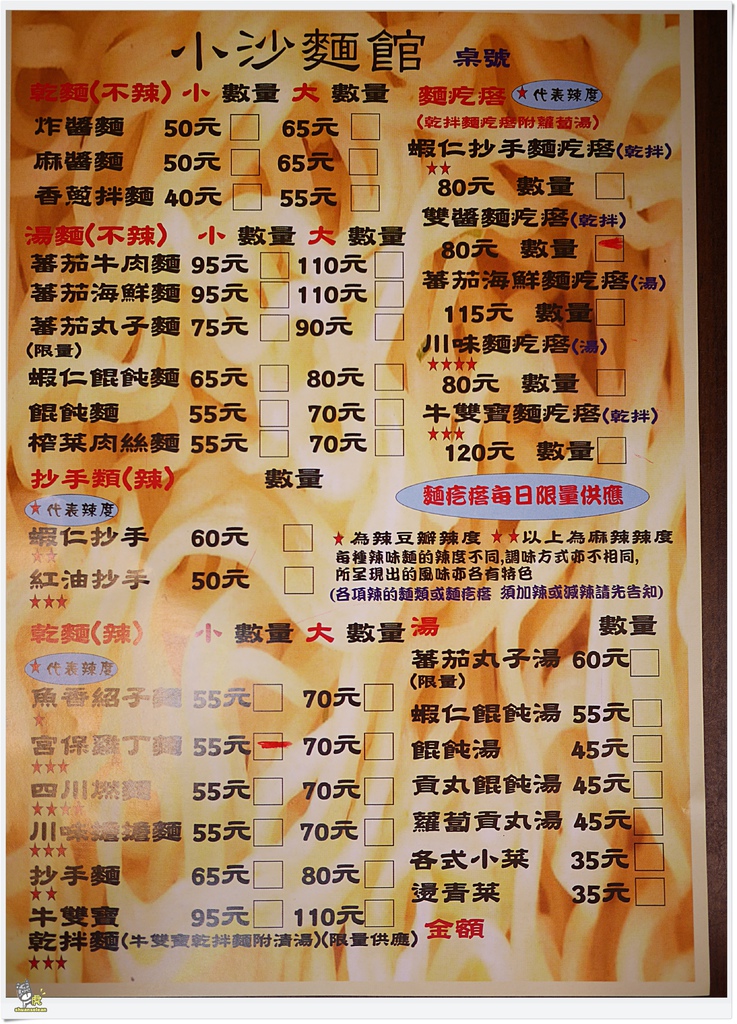 小沙麵館 桌號
乾麵(不辣) 小 數量 大 數量
炸醬麵 50元 65元
麻醬麵 50元 65元
香蔥拌麵 40元 55元
湯麵(不辣) 小 數量 大 數量
蕃茄牛肉麵 95元 110元
蕃茄海鮮麵 95元 110元
蕃茄丸子麵 75元 90元
(限量)
蝦仁餛飩麵 65元 80元
餛飩麵 55元 70元
榨菜肉絲麵 55元 70元
抄手類(辣) 數量
★代表辣度
蝦仁抄手 60元
★★
紅油抄手 50元
★★★
乾麵(辣) 小 數量 大 數量
★代表辣度
魚香紹子麵 55元 70元
★
宮保雞丁麵 55元 70元
★★★
四川燃麵 55元 70元
★★★★
川味 麵 55元 70元
★★★
抄手麵 65元 80元
★★
牛雙寶 95元 110元
乾拌麵(牛雙寶乾拌麵附清湯)(限量供應)
★★★
麵疙瘩 ★代表辣度
(乾拌麵疙瘩附蘿蔔湯)
蝦仁抄手麵疙瘩(乾拌)
★★
80元 數量
雙醬麵疙瘩(乾拌)
80元 數量
蕃茄海鮮麵疙瘩(湯)
115元 數量
川味麵疙瘩(湯)
★★★★
80元 數量
牛雙寶麵疙瘩(乾拌)
★★★
120元 數量
麵疙瘩每日限量供應
★為辣豆瓣辣度 ★★以上為麻辣辣度
每種辣味麵的辣度不同,調味方式亦不相同,
所呈現出的風味亦各有特色
(各項辣的麵類或麵疙瘩 須加辣或減辣請先告知)
湯 數量
蕃茄丸子湯 60元
(限量)
蝦仁餛飩湯 55元
餛飩湯 45元
貢丸餛飩湯 45元
蘿蔔貢丸湯 45元
各式小菜 35元
燙青菜 35元
金額